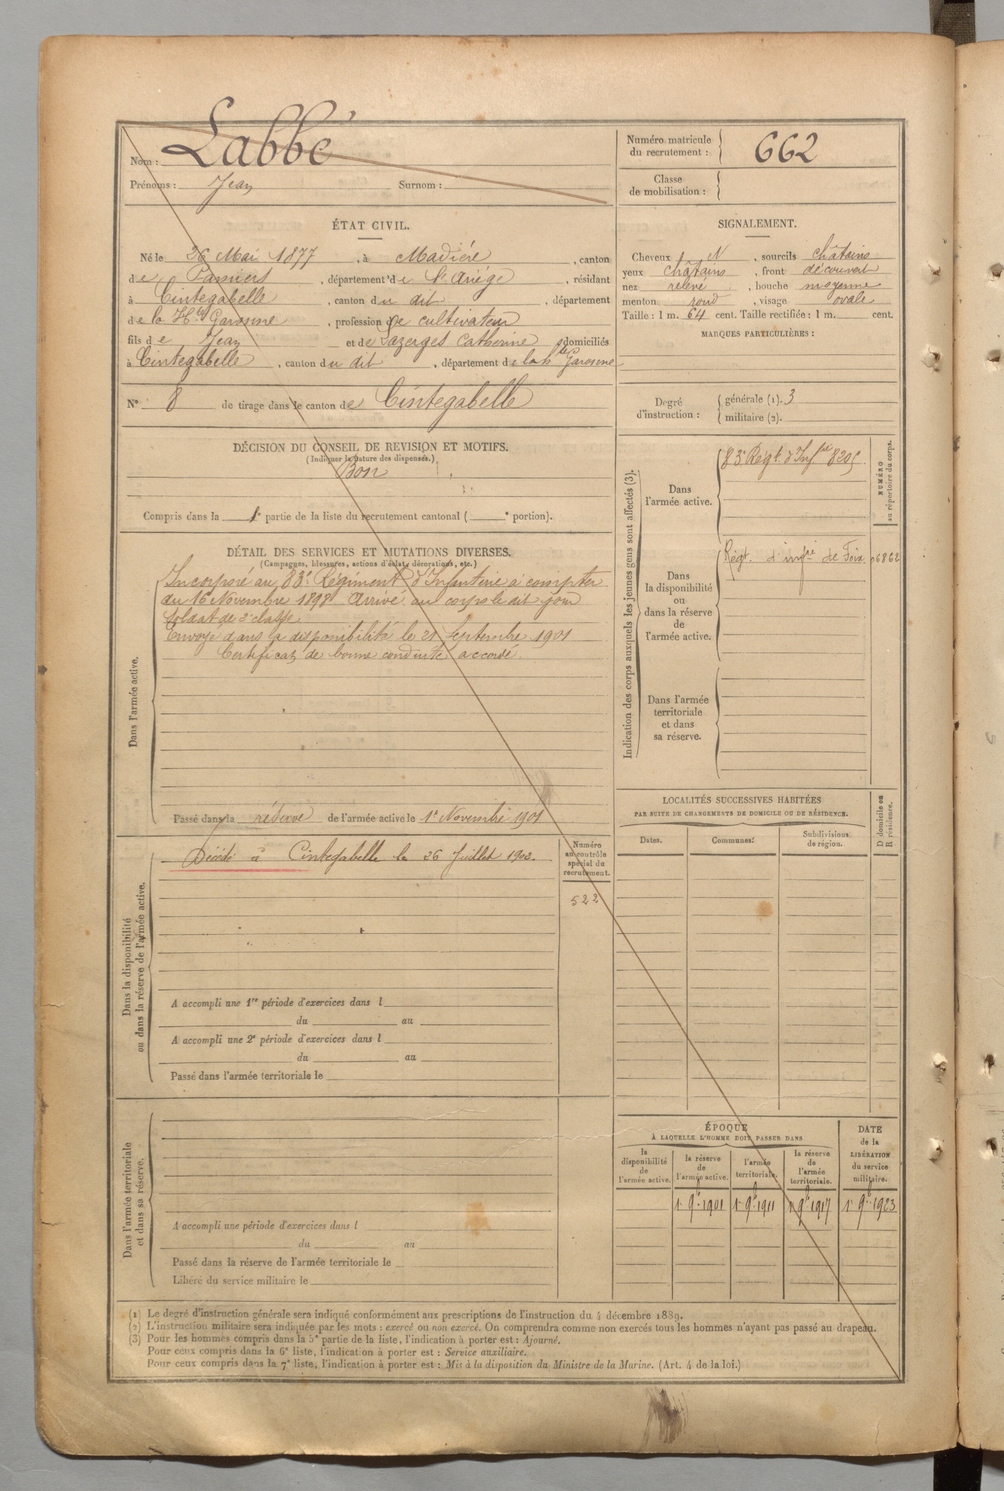 Nom : Labbé
Prénoms : Jean Surnom :
Numéro matricule du recrutement : 662
Classe de mobilisation :
ÉTAT CIVIL.
Né le 26 Mai 1877, à Madière, canton
de Pamiers, département de l'Ariége, résidant
à Cintegabelle, canton du dit, département
de la Hte Garonne, profession de cultivateur
fils de Jean et de Lazerges Catherine, domiciliés
à Cintegabelle, canton du dit, département de la h. Garonne
N° 8 de tirage dans le canton de Cintegabelle
SIGNALEMENT.
Cheveux N, sourcils châtains
yeux châtains, front découvert
nez relevé, bouche moyenne
menton rond, visage ovale
Taille : 1 m. 64 cent. Taille rectifiée : 1 m. cent.
MARQUES PARTICULIÈRES :
Degré d'instruction : générale (1). 3
militaire (2).
DÉCISION DU CONSEIL DE REVISION ET MOTIFS.
(Indiquer la nature des dispenses.)
Bon
Compris dans la 1e partie de la liste du recrutement cantonal ( e portion).
DÉTAIL DES SERVICES ET MUTATIONS DIVERSES.
(Campagnes, blessures, actions d'éclat, décorations, etc.)
Dans l'armée active.
Incorporé au 83e Régiment d'Infanterie à compter
du 16 Novembre 1898 Arrivé au corps le dit jour
Soldat de 2e classe
Envoyé dans la disponibilité le 21 Septembre 1901
Certificat de bonne conduite accordé.
Passé dans la réserve de l'armée active le 1er Novembre 1901
Dans la disponibilité ou dans la réserve de l'armée active.
Décédé à Cintegabelle le 26 Juillet 1903.
Numéro au contrôle spécial du recrutement.
522
A accompli une 1re période d'exercices dans l
du au
A accompli une 2e période d'exercices dans l
du au
Passé dans l'armée territoriale le
Dans l'armée territoriale et dans sa réserve.
A accompli une période d'exercices dans l
du au
Passé dans la réserve de l'armée territoriale le
Libéré du service militaire le
Indication des corps auxquels les jeunes gens sont affectés (3).
NUMÉRO au répertoire du corps.
Dans l'armée active.
83e Régt. d'Infie 8205
Dans la disponibilité ou dans la réserve de l'armée active.
Régt. d'infie de Foix. 06822
Dans l'armée territoriale et dans sa réserve.
LOCALITÉS SUCCESSIVES HABITÉES
PAR SUITE DE CHANGEMENTS DE DOMICILE OU DE RÉSIDENCE.
Dates. Communes. Subdivisions de région. D domicile ou R résidence.
ÉPOQUE
À LAQUELLE L'HOMME DOIT PASSER DANS
DATE de la LIBÉRATION du service militaire.
la disponibilité de l'armée active.
la réserve de l'armée active.
l'armée territoriale.
la réserve de l'armée territoriale.
1r 9b 1901 1r 9b 1911 1r 9b 1917 1r 9b 1923
(1) Le degré d'instruction générale sera indiqué conformément aux prescriptions de l'instruction du 4 décembre 1889.
(2) L'instruction militaire sera indiquée par les mots : exercé ou non exercé. On comprendra comme non exercés tous les hommes n'ayant pas passé au drapeau.
(3) Pour les hommes compris dans la 5e partie de la liste, l'indication à porter est : Ajourné.
Pour ceux compris dans la 6e liste, l'indication à porter est : Service auxiliaire.
Pour ceux compris dans la 7e liste, l'indication à porter est : Mis à la disposition du Ministre de la Marine. (Art. 4 de la loi.)